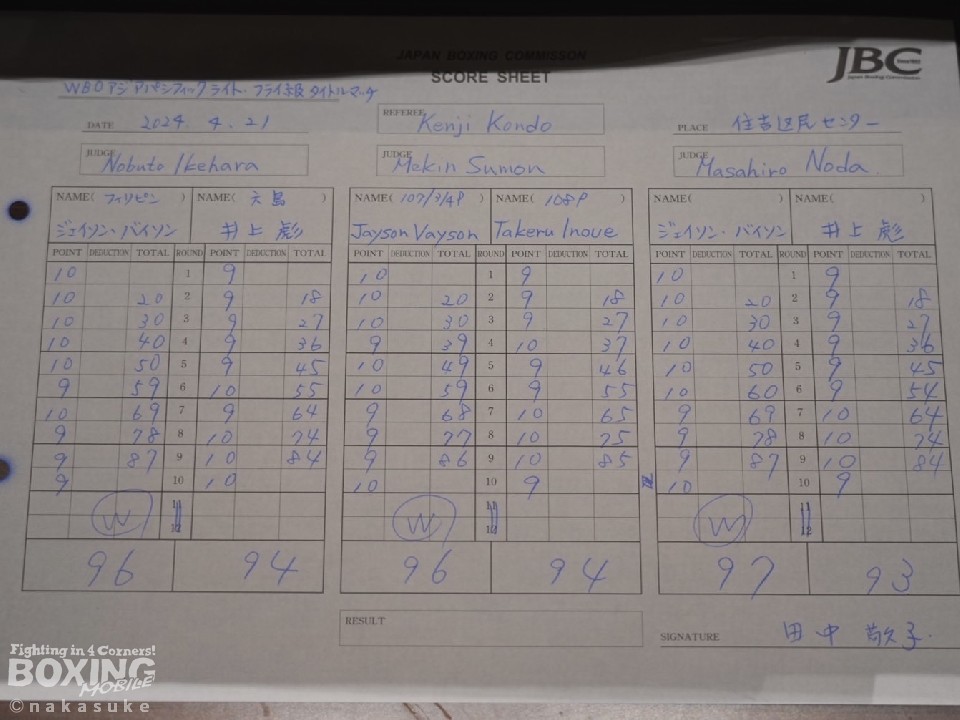 JAPAN BOXING COMMISSON
SCORE SHEET
JBC
Japan Boxing Commission
WBOアジアパシフィックライト・フライ級タイトルマッチ
DATE 2024. 4. 21
REFEREE Kenji Kondo
PLACE 住吉区民センター
JUDGE Nobuto Ikehara
JUDGE Mekin Sumon
JUDGE Masahiro Noda
NAME( フィリピン ) NAME( 大島 ) NAME( 107 3/4P ) NAME( 108P ) NAME( ) NAME( )
ジェイソン・バイソン 井上 彪 Jayson Vayson Takeru Inoue ジェイソン・バイソン 井上 彪
POINT DEDUCTION TOTAL ROUND POINT DEDUCTION TOTAL POINT DEDUCTION TOTAL ROUND POINT DEDUCTION TOTAL POINT DEDUCTION TOTAL ROUND POINT DEDUCTION TOTAL
10 1 9 10 1 9 10 1 9
10 20 2 9 18 10 20 2 9 18 10 20 2 9 18
10 30 3 9 27 10 30 3 9 27 10 30 3 9 27
10 40 4 9 36 9 39 4 10 37 10 40 4 9 36
10 50 5 9 45 10 49 5 9 46 10 50 5 9 45
9 59 6 10 55 10 59 6 9 55 10 60 6 9 54
10 69 7 9 64 9 68 7 10 65 9 69 7 10 64
9 78 8 10 74 9 77 8 10 75 9 78 8 10 74
9 87 9 10 84 9 86 9 10 85 9 87 9 10 84
9 10 10 10 10 9 10 10 9
W 11 W 11 W 11
12 12 12
96 94 96 94 97 93
RESULT
SIGNATURE 田中 敬子
Fighting in 4 Corners!
BOXING
MOBILE
©nakasuke